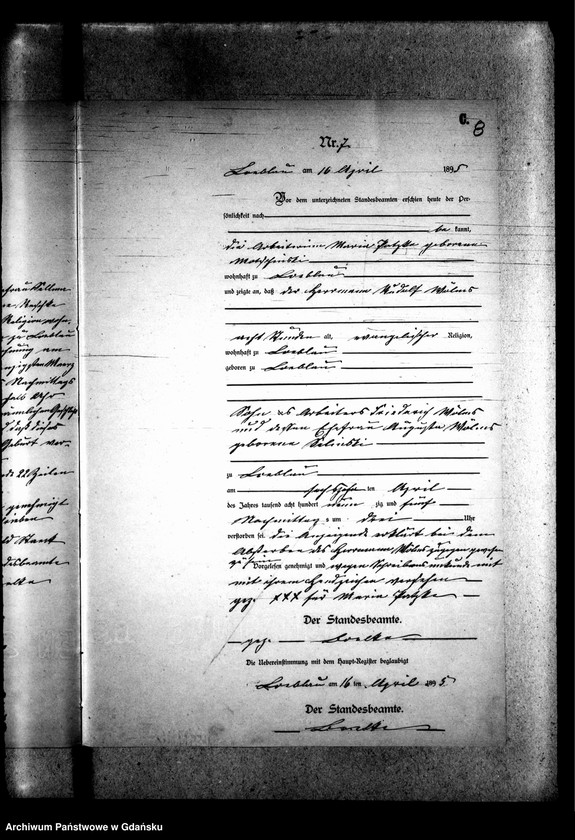 C.
8
Nr. 7.
Loeblau am 16 April 1895
Vor dem unterzeichneten Standesbeamten erschien heute der Per-
sönlichkeit nach
be kannt,
die Arbeiterin Maria geborene
wohnhaft zu Loeblau
und zeigte an, daß der Herrmann Rudolf Wölms
acht Stunden alt, evangelischer Religion,
wohnhaft zu Loeblau
geboren zu Loeblau
Sohn des Arbeiters Friederich Wölms
und dessen Ehefrau Auguste Wölms
geborene
zu Loeblau
am sechszehn ten April
des Jahres tausend acht hundert neun zig und fünf
Nachmittag s um drei Uhr
verstorben sei. die Anzeigende erklärt bei dem
Absterben des Herrmann Wölms zugegen gewesen
zu sein
Vorgelesen genehmigt und wegen Schreibensunkunde mit
mit ihrem Handzeichen versehen
gez. XXX für Maria
Der Standesbeamte.
gez.
Die Uebereinstimmung mit dem Haupt-Register beglaubigt
Loeblau am 16 ten April 1895
Der Standesbeamte.
Religion
zu Loeblau
Nachmittags
Uhr
22 Zeilen
genehmigt
Archiwum Państwowe w Gdańsku